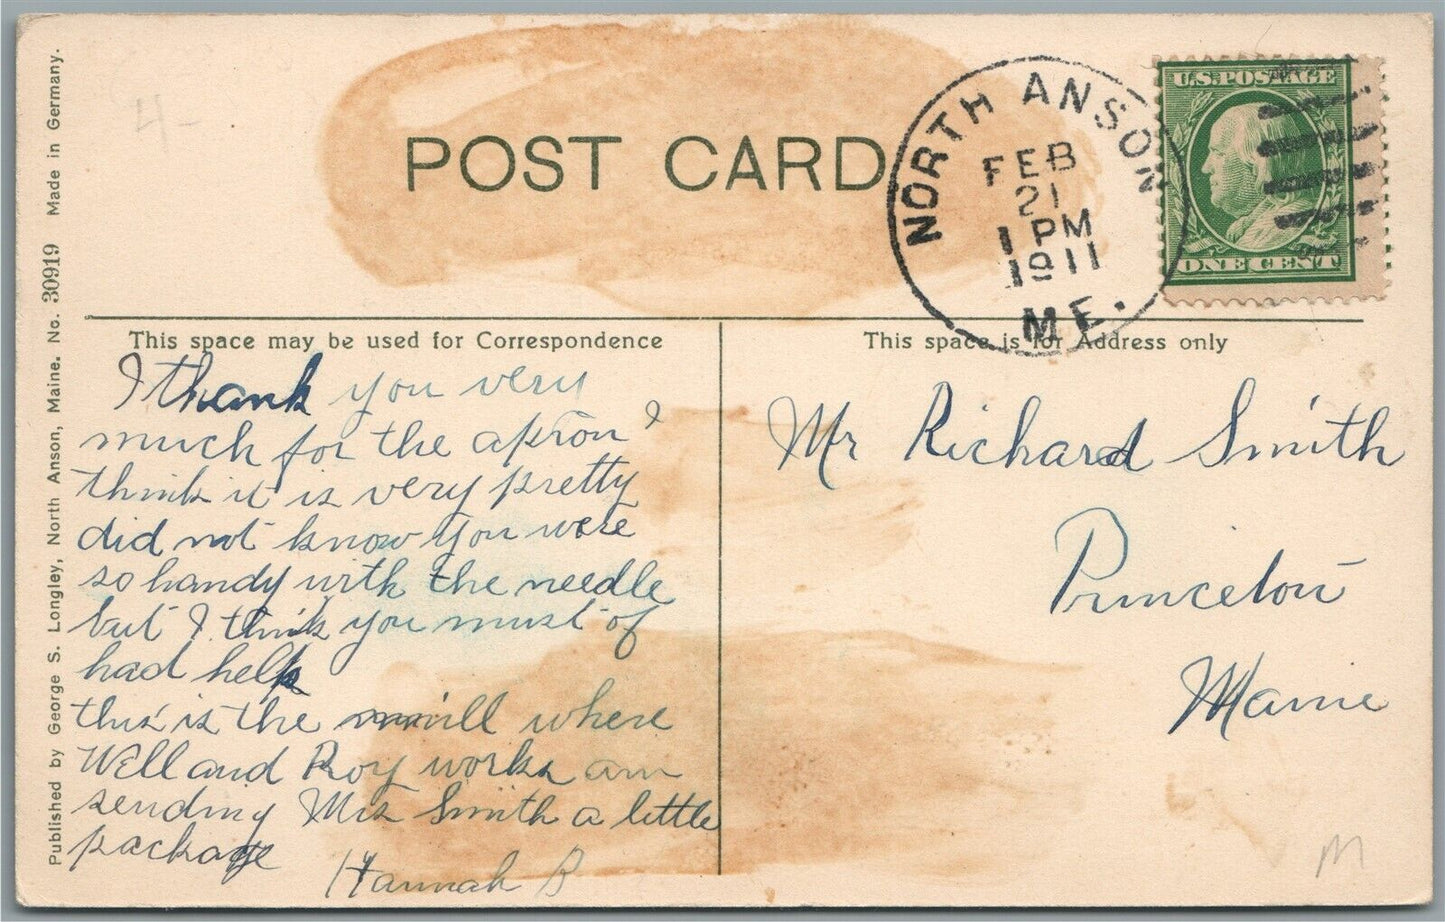 4-
POST CARD
NORTH ANSON
FEB
21
1 PM
1911
ME.
U.S. POSTAGE
ONE CENT
This space may be used for Correspondence
This space is for Address only
I thank you very
much for the apron I
think it is very pretty
did not know you were
so handy with the needle
but I think you must of
had help
this is the mill where
Well and Roy works am
sending Mrs Smith a little
package
Hannah B
Mr Richard Smith
Princeton
Maine
M
Published by George S. Longley, North Anson, Maine. No. 30919 Made in Germany.